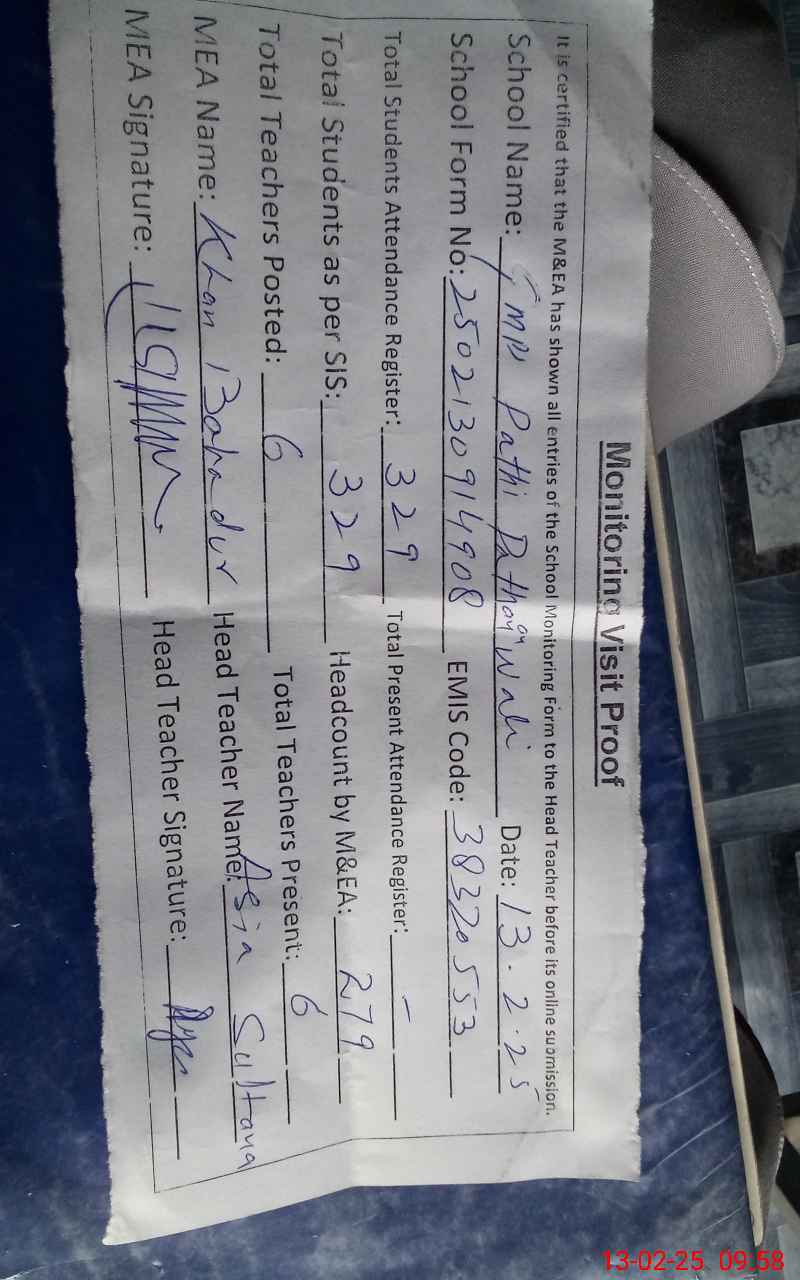 Monitoring Visit Proof
It is certified that the M&EA has shown all entries of the School Monitoring Form to the Head Teacher before its online submission.
School Name: GMPS Pathi Pathan Wali Date: 13.2.25
School Form No: 2502130914908 EMIS Code: 38320553
Total Students Attendance Register: 329 Total Present Attendance Register: -
Total Students as per SIS: 329 Headcount by M&EA: 279
Total Teachers Posted: 6 Total Teachers Present: 6
MEA Name: Khan Bahadur Head Teacher Name: Asia Sultana
MEA Signature: Head Teacher Signature:
13-02-25 09:58